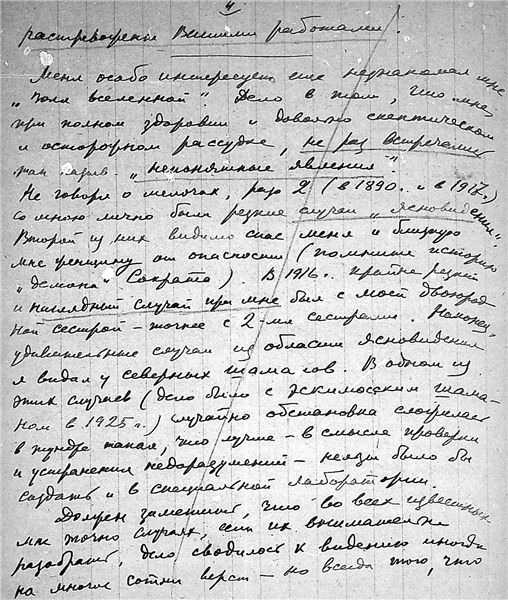 4
растревоженье Вашими работами.
Меня особо интересует еще незнакомая мне
„Воля вселенной". Дело в том, что мне,
при полном здоровии и довольно скептическом
и осторожном рассудке, не раз встречались
так назыв. „непонятные явления".
Не говоря о мелочах, раза 2 (в 1890. и в 1917 г.)
со мною лично были резкие случаи „ясновидения".
Второй из них видимо спас меня и близкую
мне женщину от опасности (помните историю
„демона" Сократа). В 1916 г. крайне резкий
и наглядный случай при мне был с моей двоюрод
ной сестрой – точнее с 2-мя сестрами. Наконец,
удивительные случаи из области ясновидения
я видал у северных шаманов. В одном из
этих случаев (дело было с эскимосским шама-
ном в 1925 г.) случайно обстановка сложилась
в тундре такая, что лучше – в смысле проверки
и устранения недоразумений – нельзя было бы
создать и в специальной лаборатории.
Должен заметить, что во всех известных
мне точно случаях, если их внимательно
разобрать, дело сводилось к видению иногда
на многие сотни верст – но всегда того, что